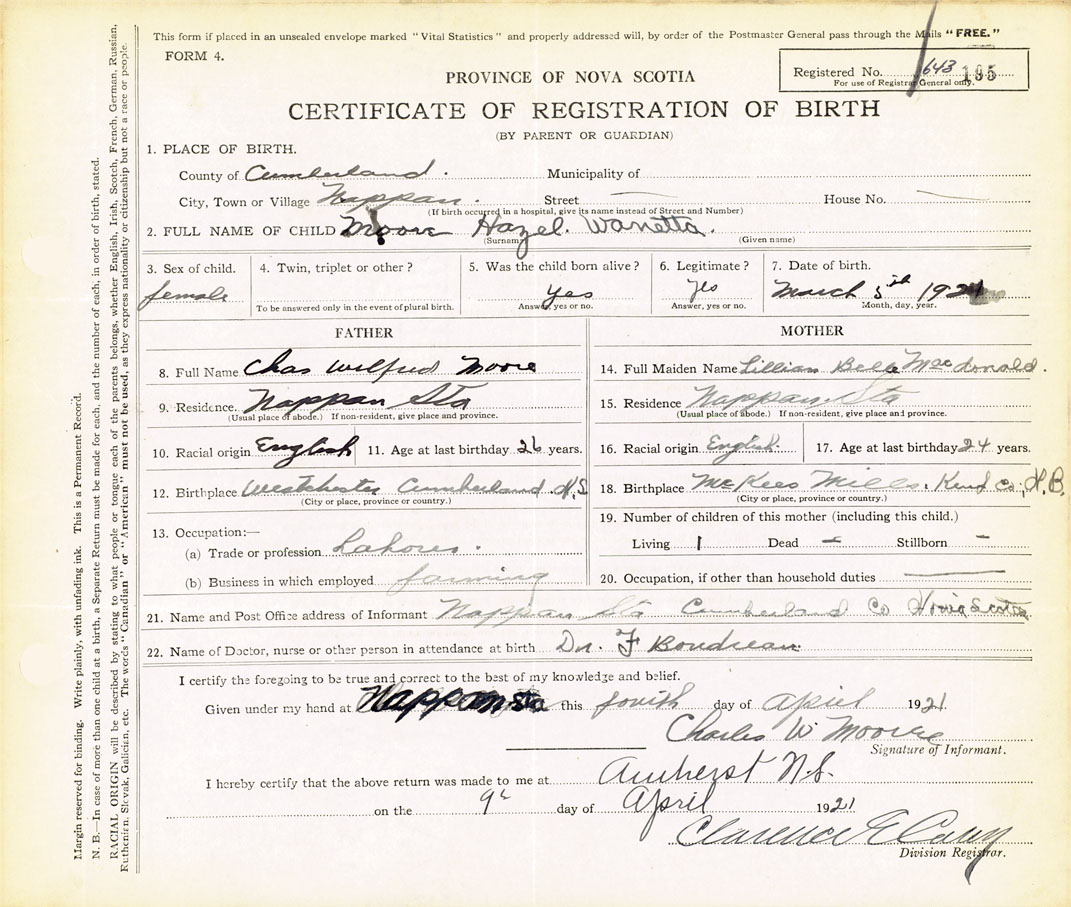 This form if placed in an unsealed envelope marked "Vital Statistics" and properly addressed will, by order of the Postmaster General pass through the Mails "FREE."
FORM 4.
Registered No. 643 195
For use of Registrar General only.
PROVINCE OF NOVA SCOTIA
CERTIFICATE OF REGISTRATION OF BIRTH
(BY PARENT OR GUARDIAN)
1. PLACE OF BIRTH.
County of Cumberland. Municipality of
City, Town or Village Nappan. Street House No.
(If birth occurred in a hospital, give its name instead of Street and Number)
2. FULL NAME OF CHILD Moore Hazel. Wanetta.
(Surname) (Given name)
3. Sex of child. 4. Twin, triplet or other? 5. Was the child born alive? 6. Legitimate? 7. Date of birth.
female yes yes March 5th 1921
To be answered only in the event of plural birth. Answer, yes or no. Answer, yes or no. Month, day, year.
FATHER
8. Full Name Chas Wilfred Moore
9. Residence. Nappan Sta
(Usual place of abode.) If non-resident, give place and province.
10. Racial origin English 11. Age at last birthday 26 years.
12. Birthplace Westchester Cumberland N.S
(City or place, province or country.)
13. Occupation:—
(a) Trade or profession Labourer.
(b) Business in which employed farming
MOTHER
14. Full Maiden Name Lillian Belle MacDonald.
15. Residence Nappan Sta
(Usual place of abode.) If non-resident, give place and province.
16. Racial origin English. 17. Age at last birthday 24 years.
18. Birthplace McKees Mills. Kent Co, N.B.
(City or place, province or country.)
19. Number of children of this mother (including this child.)
Living 1 Dead – Stillborn –
20. Occupation, if other than household duties
21. Name and Post Office address of Informant Nappan Sta Cumberland Co Nova Scotia
22. Name of Doctor, nurse or other person in attendance at birth Dr. F Boudreau.
I certify the foregoing to be true and correct to the best of my knowledge and belief.
Given under my hand at Nappan Sta this fourth day of April 1921
Charles W Moore
Signature of Informant.
I hereby certify that the above return was made to me at Amherst N.S.
on the 9th day of April 1921
Clarence E Casey
Division Registrar.
Margin reserved for binding. Write plainly, with unfading ink. This is a Permanent Record.
N. B.—In case of more than one child at a birth, a Separate Return must be made for each, and the number of each, in order of birth, stated.
RACIAL ORIGIN will be described by stating to what people or tongue each of the parents belongs, whether English, Irish, Scotch, French, German, Russian,
Ruthenian, Slovak, Galician, etc. The words "Canadian" or "American" must not be used, as they express nationality or citizenship but not a race or people.